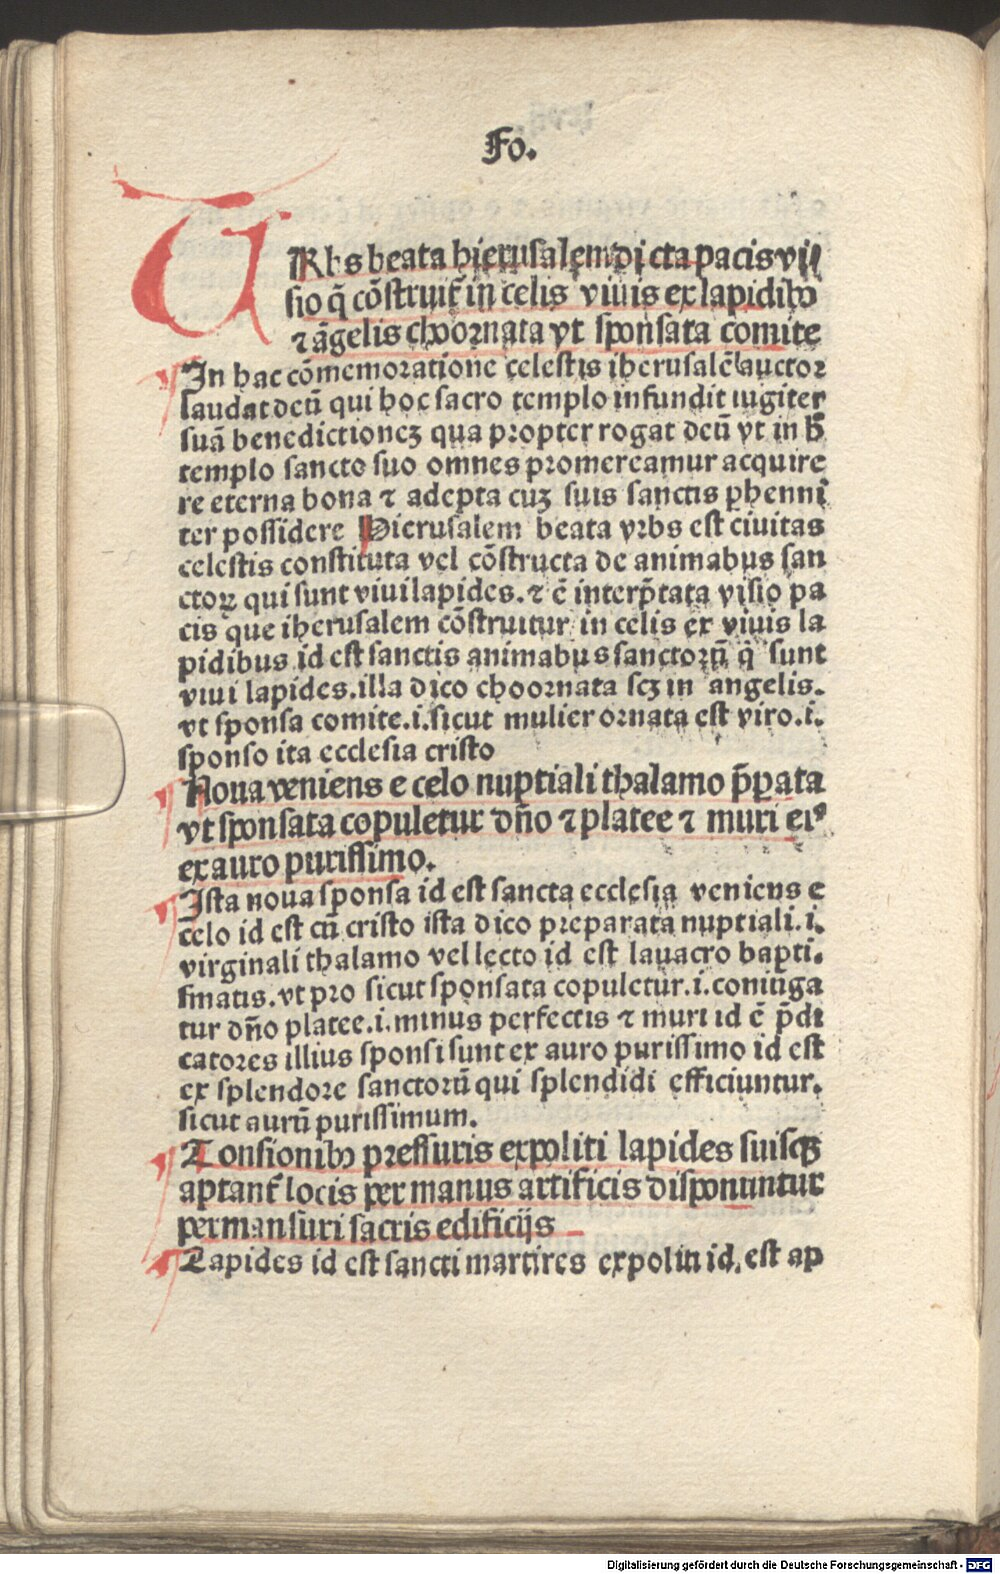 Fo.
URbs beata hierusalem dicta pacis vi
sio q̄ cōstruit̄ in celis viuis ex lapidibꝰ
⁊ āgelis choornata vt sponsata comite
In hac cōmemoratione celestis iherusalē auctor
laudat deū qui hoc sacro templo infundit iugiter
suā benedictionez qua propter rogat deū vt in h̄
templo sancto suo omnes promereamur acquire
re eterna bona ⁊ adepta cuz suis sanctis phenni
ter possidere Hierusalem beata vrbs est ciuitas
celestis constituta vel cōstructa de animabus san
ctoꝝ qui sunt viui lapides. ⁊ ē interp̄tata visio pa
cis que iherusalem cōstruitur in celis ex viuis la
pidibus id est sanctis animabus sanctorū q̄ sunt
viui lapides. illa dico choornata scz in angelis.
vt sponsa comite .i. sicut mulier ornata est viro .i.
sponso ita ecclesia cristo
Noua veniens e celo nuptiali thalamo p̄parata
vt sponsata copuletur dño ⁊ platee ⁊ muri eiꝰ
ex auro purissimo.
Ista noua sponsa id est sancta ecclesia veniens e
celo id est cū cristo ista dico preparata nuptiali .i.
virginali thalamo vel lecto id est lauacro bapti.
smatis. vt pro sicut sponsata copuletur .i. coniuga
tur dño platee .i. minus perfectis ⁊ muri id ē p̄di
catores illius sponsi sunt ex auro purissimo id est
ex splendore sanctorū qui splendidi efficiuntur.
sicut aurū purissimum.
Tonsionibꝰ pressuris expoliti lapides suisqꝫ
aptant̄ locis per manus artificis disponuntur
permansuri sacris edificijs
Lapides id est sancti martires expoliti id. est ap
Digitalisierung gefördert durch die Deutsche Forschungsgemeinschaft - DFG